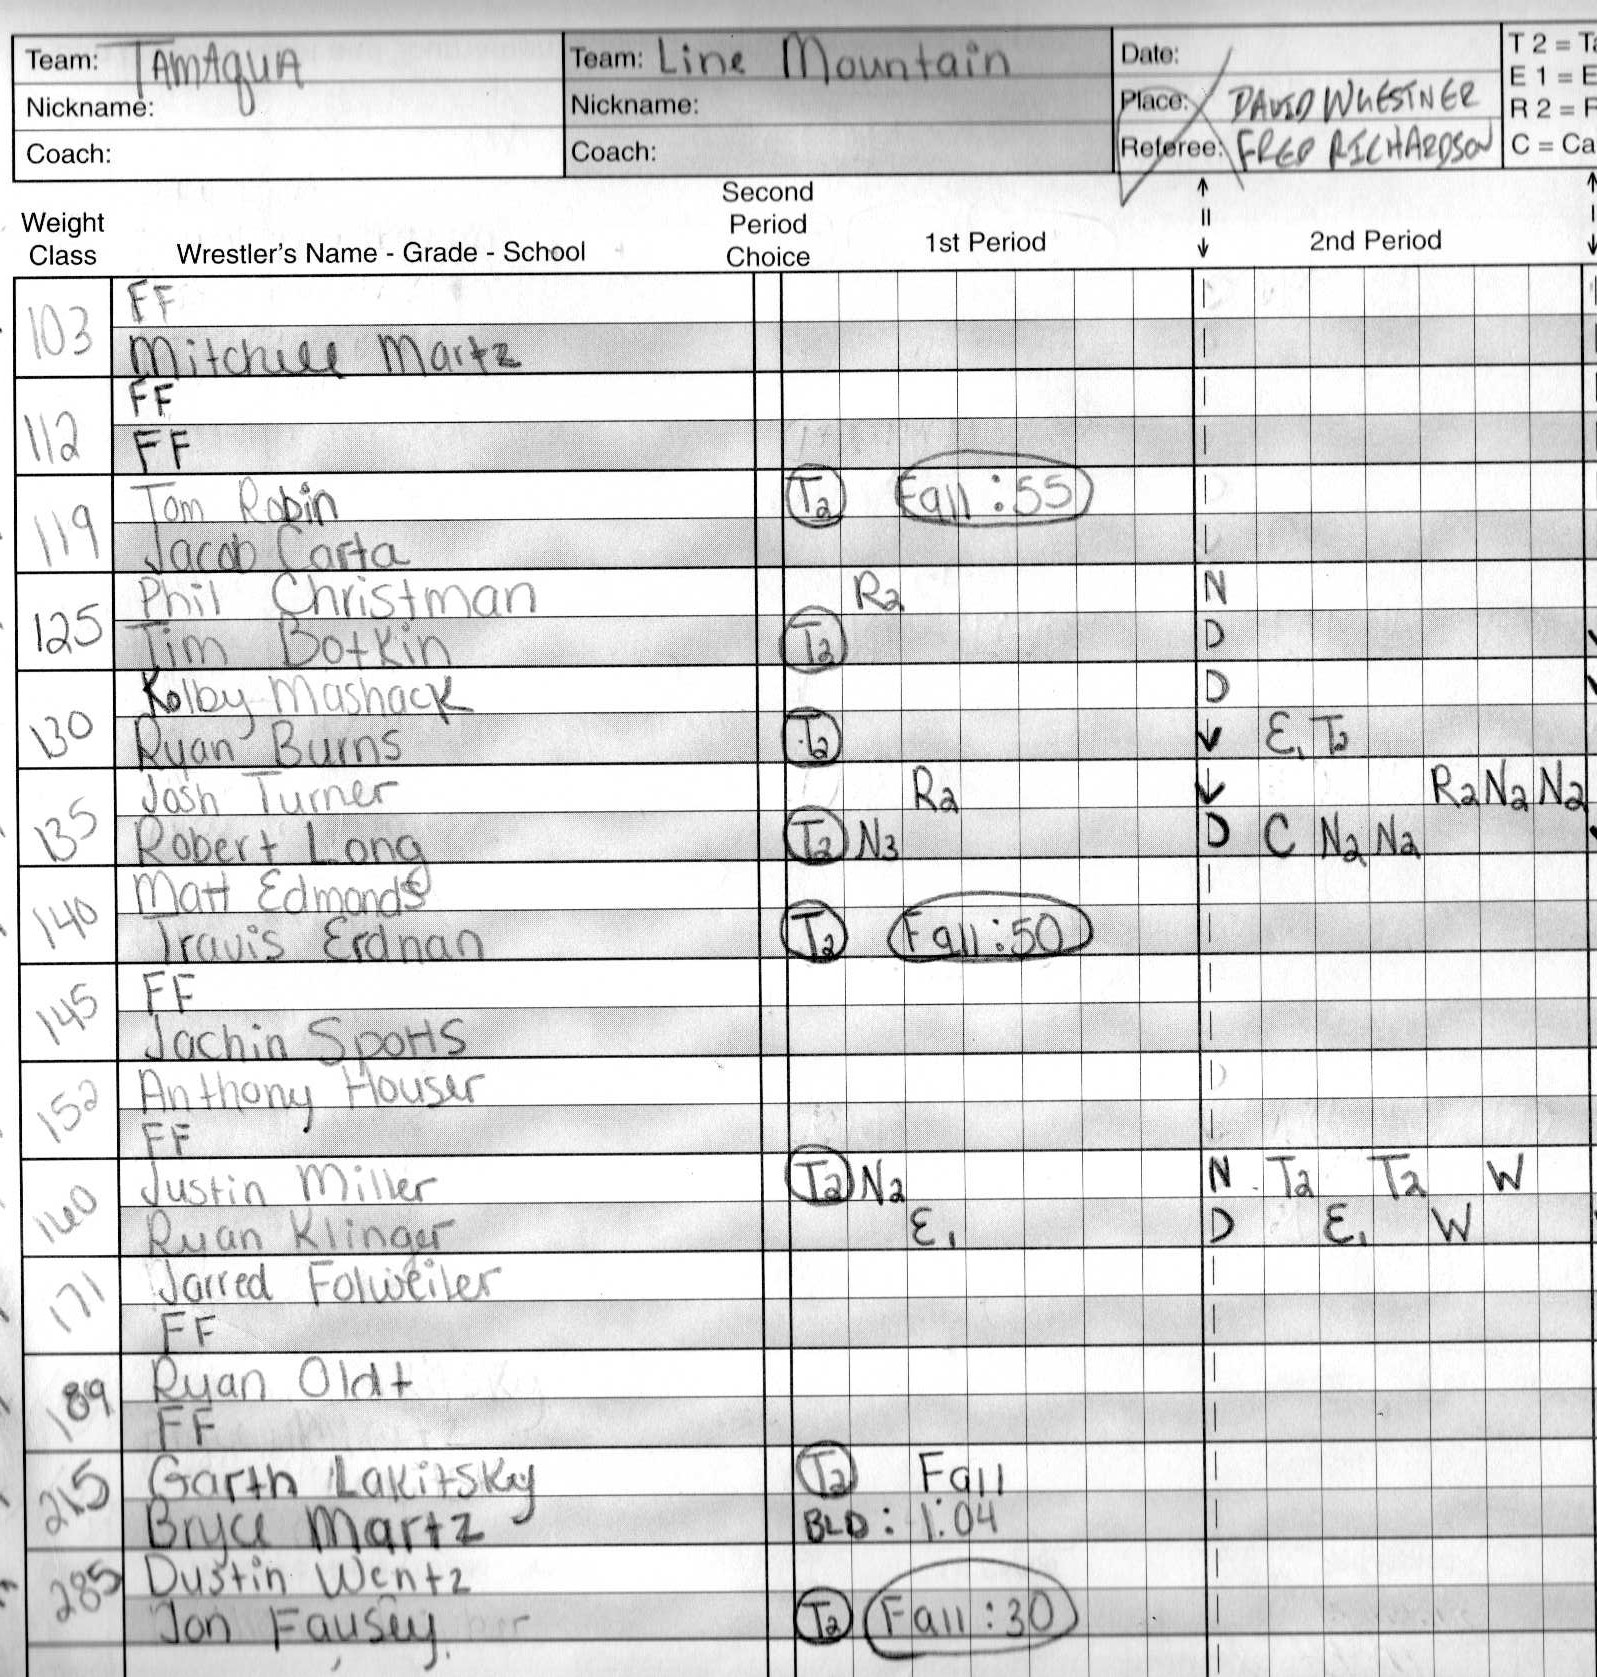 Team: TAMAQUA Team: Line Mountain Date: T 2 = Ta
Nickname: Nickname: Place: DAVID WUESTNER E 1 = E
Coach: Coach: Referee: FRED RICHARDSON R 2 = F
C = Ca
Weight Class Wrestler's Name - Grade - School Second Period Choice 1st Period 2nd Period
103 FF
Mitchell Martz
112 FF
FF
119 Tom Robin T2 Fall :55
Jacob Carta
125 Phil Christman R2 N
Tim Botkin T2 D
130 Kolby Mashack D
Ryan Burns T2 ↓ E1 T2
135 Josh Turner R2 ↓ R2 N2 N2
Robert Long T2 N3 D C N2 N2
140 Matt Edmonds
Travis Erdnan T2 Fall :50
145 FF
Jachin Spotts
152 Anthony Houser
FF
160 Justin Miller T2 N2 N T2 T2 W
Ryan Klinger E1 D E1 W
171 Jarred Folweiler
FF
189 Ryan Oldt
FF
215 Garth Lakitsky T2 Fall
Bryce Martz BLD: 1:04
285 Dustin Wentz
Jon Fausey T2 Fall :30